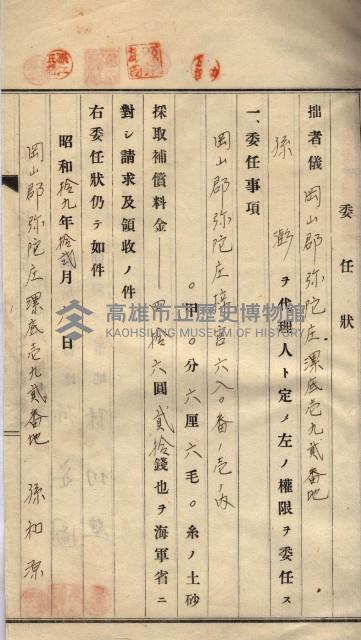 委任狀
拙者儀 岡山郡弥陀庄漯底壱九貳番地
孫 ヲ代理人ト定メ左ノ權限ヲ委任ス
一、委任事項
岡山郡弥陀庄 官六八〇番ノ壱ノ内
〇甲〇分六厘六毛〇糸ノ土砂
採取補償料金 四拾六圓貳拾錢也ヲ海軍省ニ
對シ請求及領收ノ件
右委任狀仍テ如件
昭和拾九年拾貳月 日
岡山郡弥陀庄漯底壱九貳番地 孫和源
高雄市立歷史博物館
KAOHSIUNG MUSEUM OF HISTORY